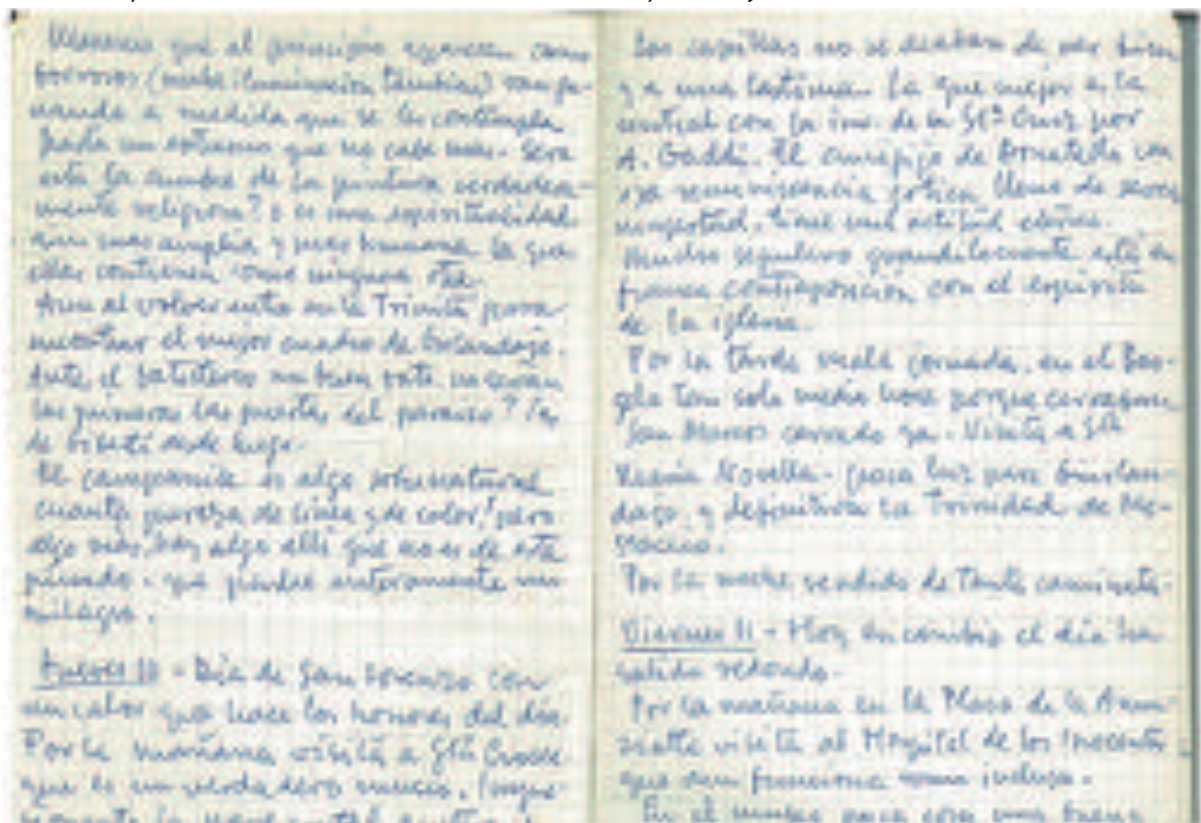 que al principio aparecen como
borrosos (mala iluminación también) van ga-
nando a medida que se les contempla
hasta un extremo que no cabe mas. Sera
esta la cumbre de la pintura verdadera-
mente religiosa? o es una espiritualidad
aun mas amplia y mas humana la que
ellas contienen como ninguna otra.
Aun al volver entro en la Trinitá para
encontrar el mejor cuadro de Ghirlandajo.
Ante el batisterio un buen rato. no seran
las primeras las puertas del paraiso? la
de Ghiberti desde luego.
El campanile es algo sobrenatural
cuanta pureza de linea y de color, pero
algo mas, hay algo alli que no es de este
mundo. que puedes enteramente un
milagro.
Jueves 10 - Dia de San Lorenzo con
un calor que hace los honores del dia.
Por la mañana visita a Stª Croce
que es un verdadero museo.
la nave central
Las capillas no se acaban de ver bien
y es una lastima. La que mejor es la
central con la inv. de la Stª Cruz por
A. Gaddi. El crucifijo de Donatello con
esa reminiscencia gotica lleno de
majestad, tiene una actitud
Mucho sepulcro grandilocuente está en
franca contraposición con el
de la iglesia.
Por la tarde mala jornada, en el Bar-
gello tan solo media hora porque cerraron
San Marco cerrado ya. Visita a Stª
Maria Novella - poca luz para Ghirlan-
dajo y definitiva la Trinidad de Ma-
saccio.
Por la noche rendido de tanta caminata.
Viernes 11 - Hoy en cambio el dia ha
salido redondo.
Por la mañana en la Plaza de la Anun-
ziatta visita al Hospital de los Inocentes
que aun funciona como inclusa.
En el museo para una buena